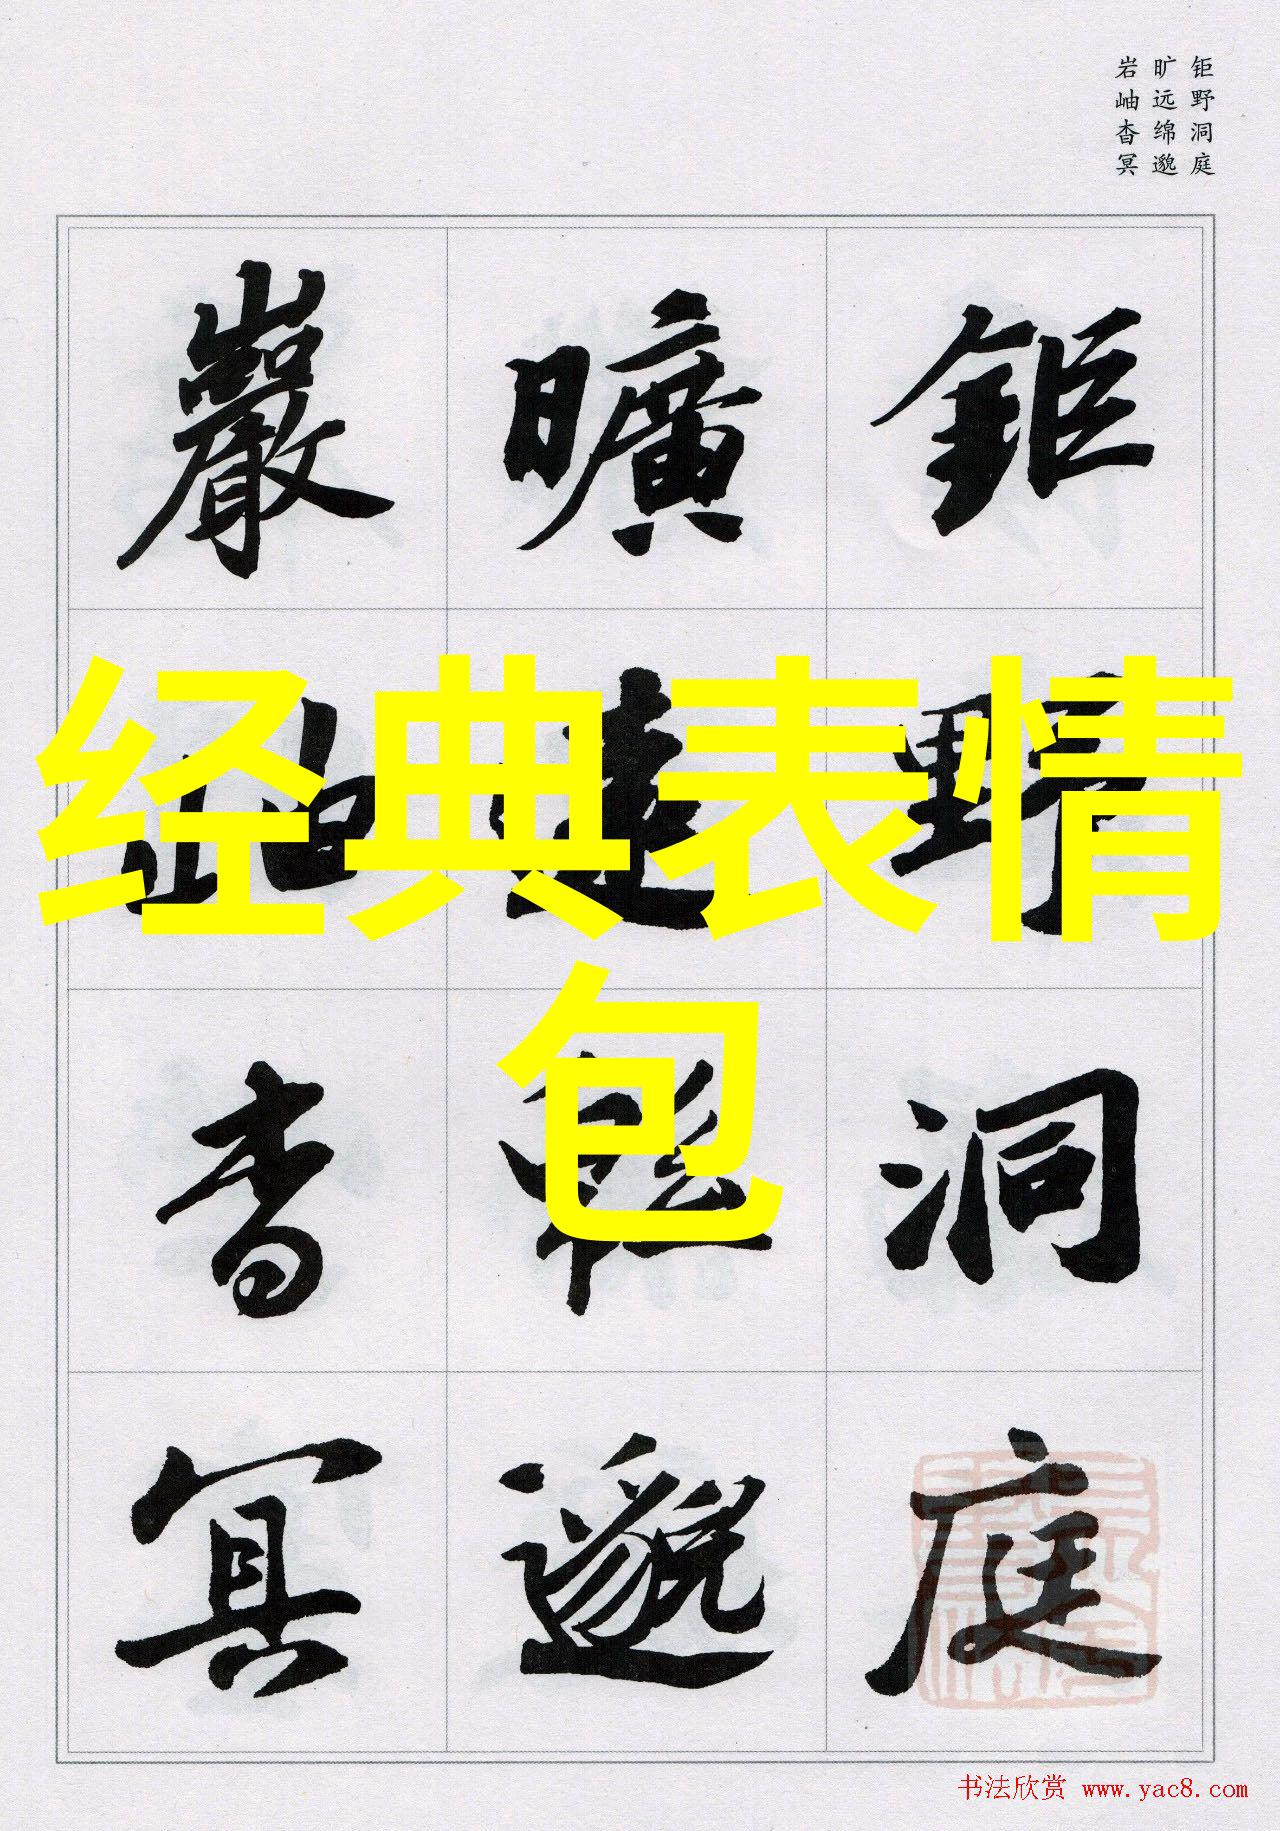 钜野洞庭
旷远绵邈
岩岫杳冥
鉅野洞庭
曠遠緜邈
巖岫杳冥
经典表情
包
书法欣赏 www.yac8.com